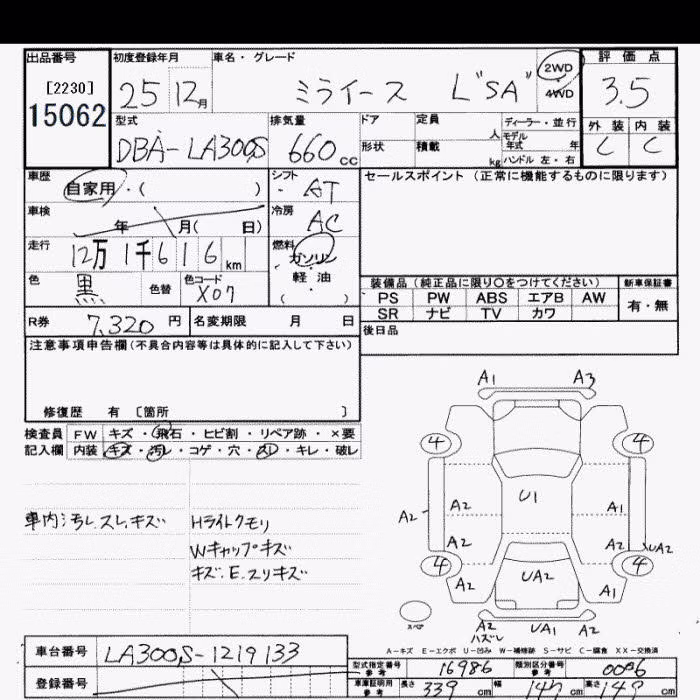 出品番号 初度登録年月 車名・グレード 評価点
[2230] 25 12月 ミライース L"SA" 2WD 4WD 3.5
15062
型式 排気量 ドア 定員 人 ディーラー・並行 外装 内装
DBA-LA300S 660cc 形状 積載 kg モデル年式 年 ハンドル 左・右 C C
車歴 シフト セールスポイント(正常に機能するものに限ります)
自家用・( ) AT
車検 年 月( 日) 冷房 AC
走行 12万1千616km 燃料 ガソリン
色 黒 色替 色コード X07 軽油 ( )
装備品(純正品に限り○をつけてください) 新車保証書
PS PW ABS エアB AW 有・無
SR ナビ TV カワ
R券 7,320円 名変期限 月 日 後日品
注意事項申告欄(不具合内容等は具体的に記入して下さい)
修復歴 有 [箇所 ]
検査員 FW キズ・飛石・ヒビ割・リペア跡・×要
記入欄 内装 キズ・汚レ・コゲ・穴・スレ・キレ・破レ
A1 A3
4 4
U1
A2 A2 A1
A2 A2 UA2
4 4
A2 UA2 A1
車内汚レ.スレ.キズ Hライトクモリ
Wキャップキズ
キズ.E.スリキズ
スペア A2 ハズレ UA1 A2
A-キズ E-エクボ U-凹み W-補修跡 S-サビ C-腐食 XX-交換済
車台番号 LA300S-1219133 型式指定番号 参考 16986 類別区分番号 参考 0006
登録番号 車庫証明用 参考 長さ 339cm 幅 147cm 高さ 149cm